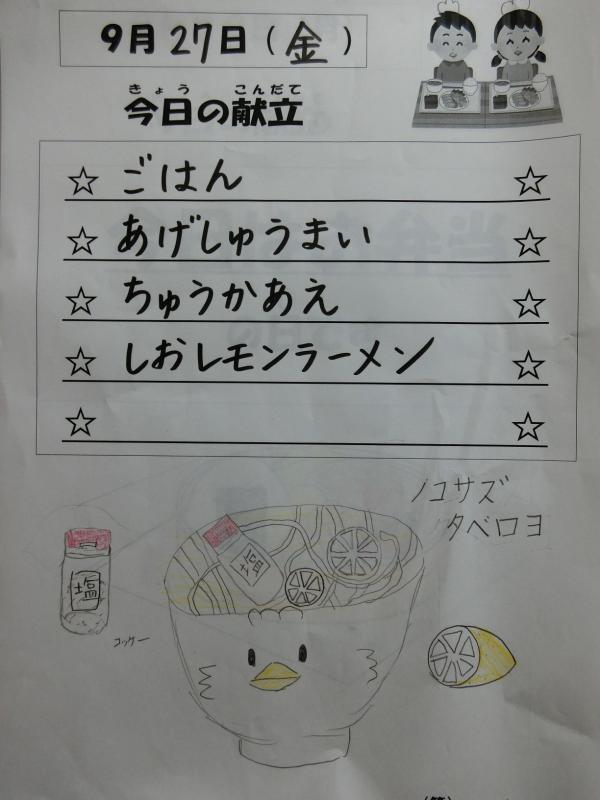 9月27日(金)
きょう こんだて
今日の献立
☆ ごはん ☆
☆ あげしゅうまい ☆
☆ ちゅうかあえ ☆
☆ しおレモンラーメン ☆
☆ ☆
ノコサズ
タベロヨ
塩
塩
コッケー